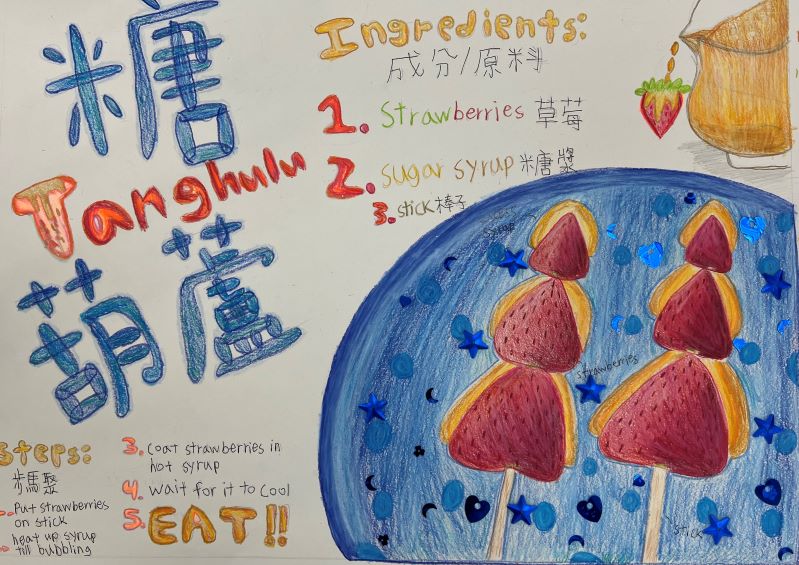 糖
Tanghulu
葫蘆
Ingredients:
成分/原料
1. Strawberries 草莓
2. sugar syrup 糖漿
3. stick 棒子
syrup
strawberries
stick
Steps:
Put strawberries
on stick
heat up syrup
till bubbling
3. Coat strawberries in
hot syrup
4. Wait for it to cool
5. EAT!!